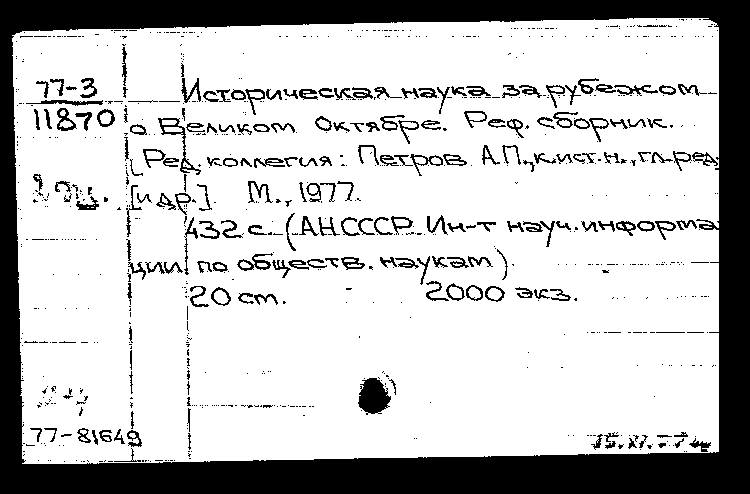 77-3 Историческая наука за рубежом
11870 о Великом Октябре. Реф. сборник.
[Ред. коллегия: Петров А.П., к.ист.н., гл. ред.
[и др.] М., 1977.
432 с. (АН СССР Ин-т науч. информа
ции по обществ. наукам).
20 ст. 2000 экз.
77-81649